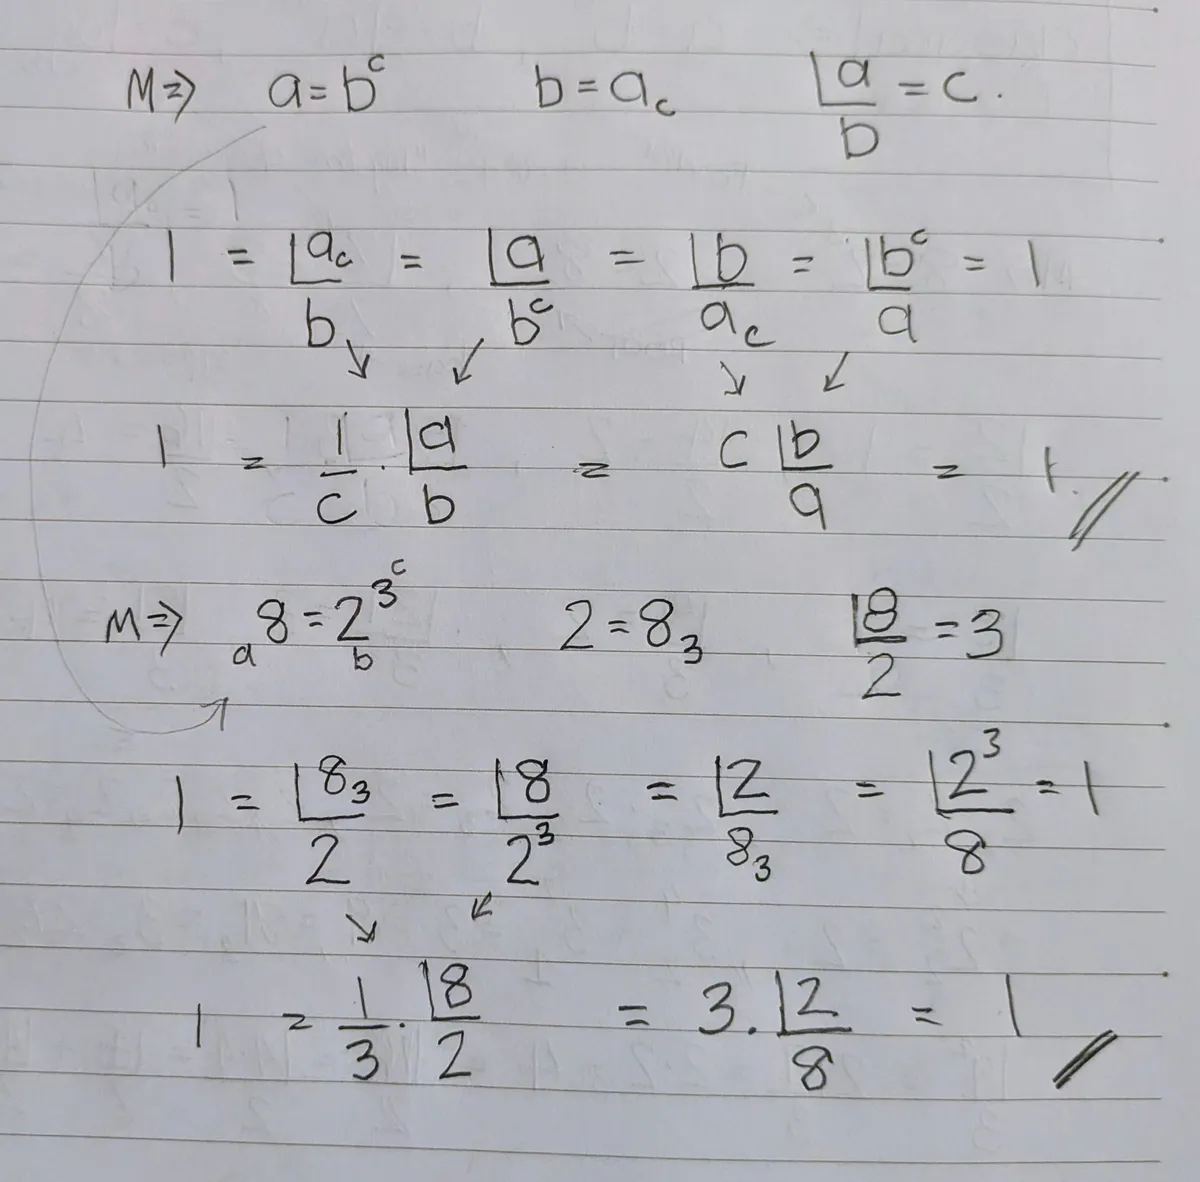 M⇒ a=b^c b=a_c ⌊a/b = c.
1 = ⌊a_c/b = ⌊a/b^c = ⌊b/a_c = ⌊b^c/a = 1
↘ ↙ ↘ ↙
1 = 1/c · ⌊a/b = c ⌊b/a = 1.//
M⇒ a 8=2^3^c b 2=8_3 ⌊8/2 = 3
1 = ⌊8_3/2 = ⌊8/2^3 = ⌊2/8_3 = ⌊2^3/8 = 1
↘ ↙
1 = 1/3 · ⌊8/2 = 3. ⌊2/8 = 1 //